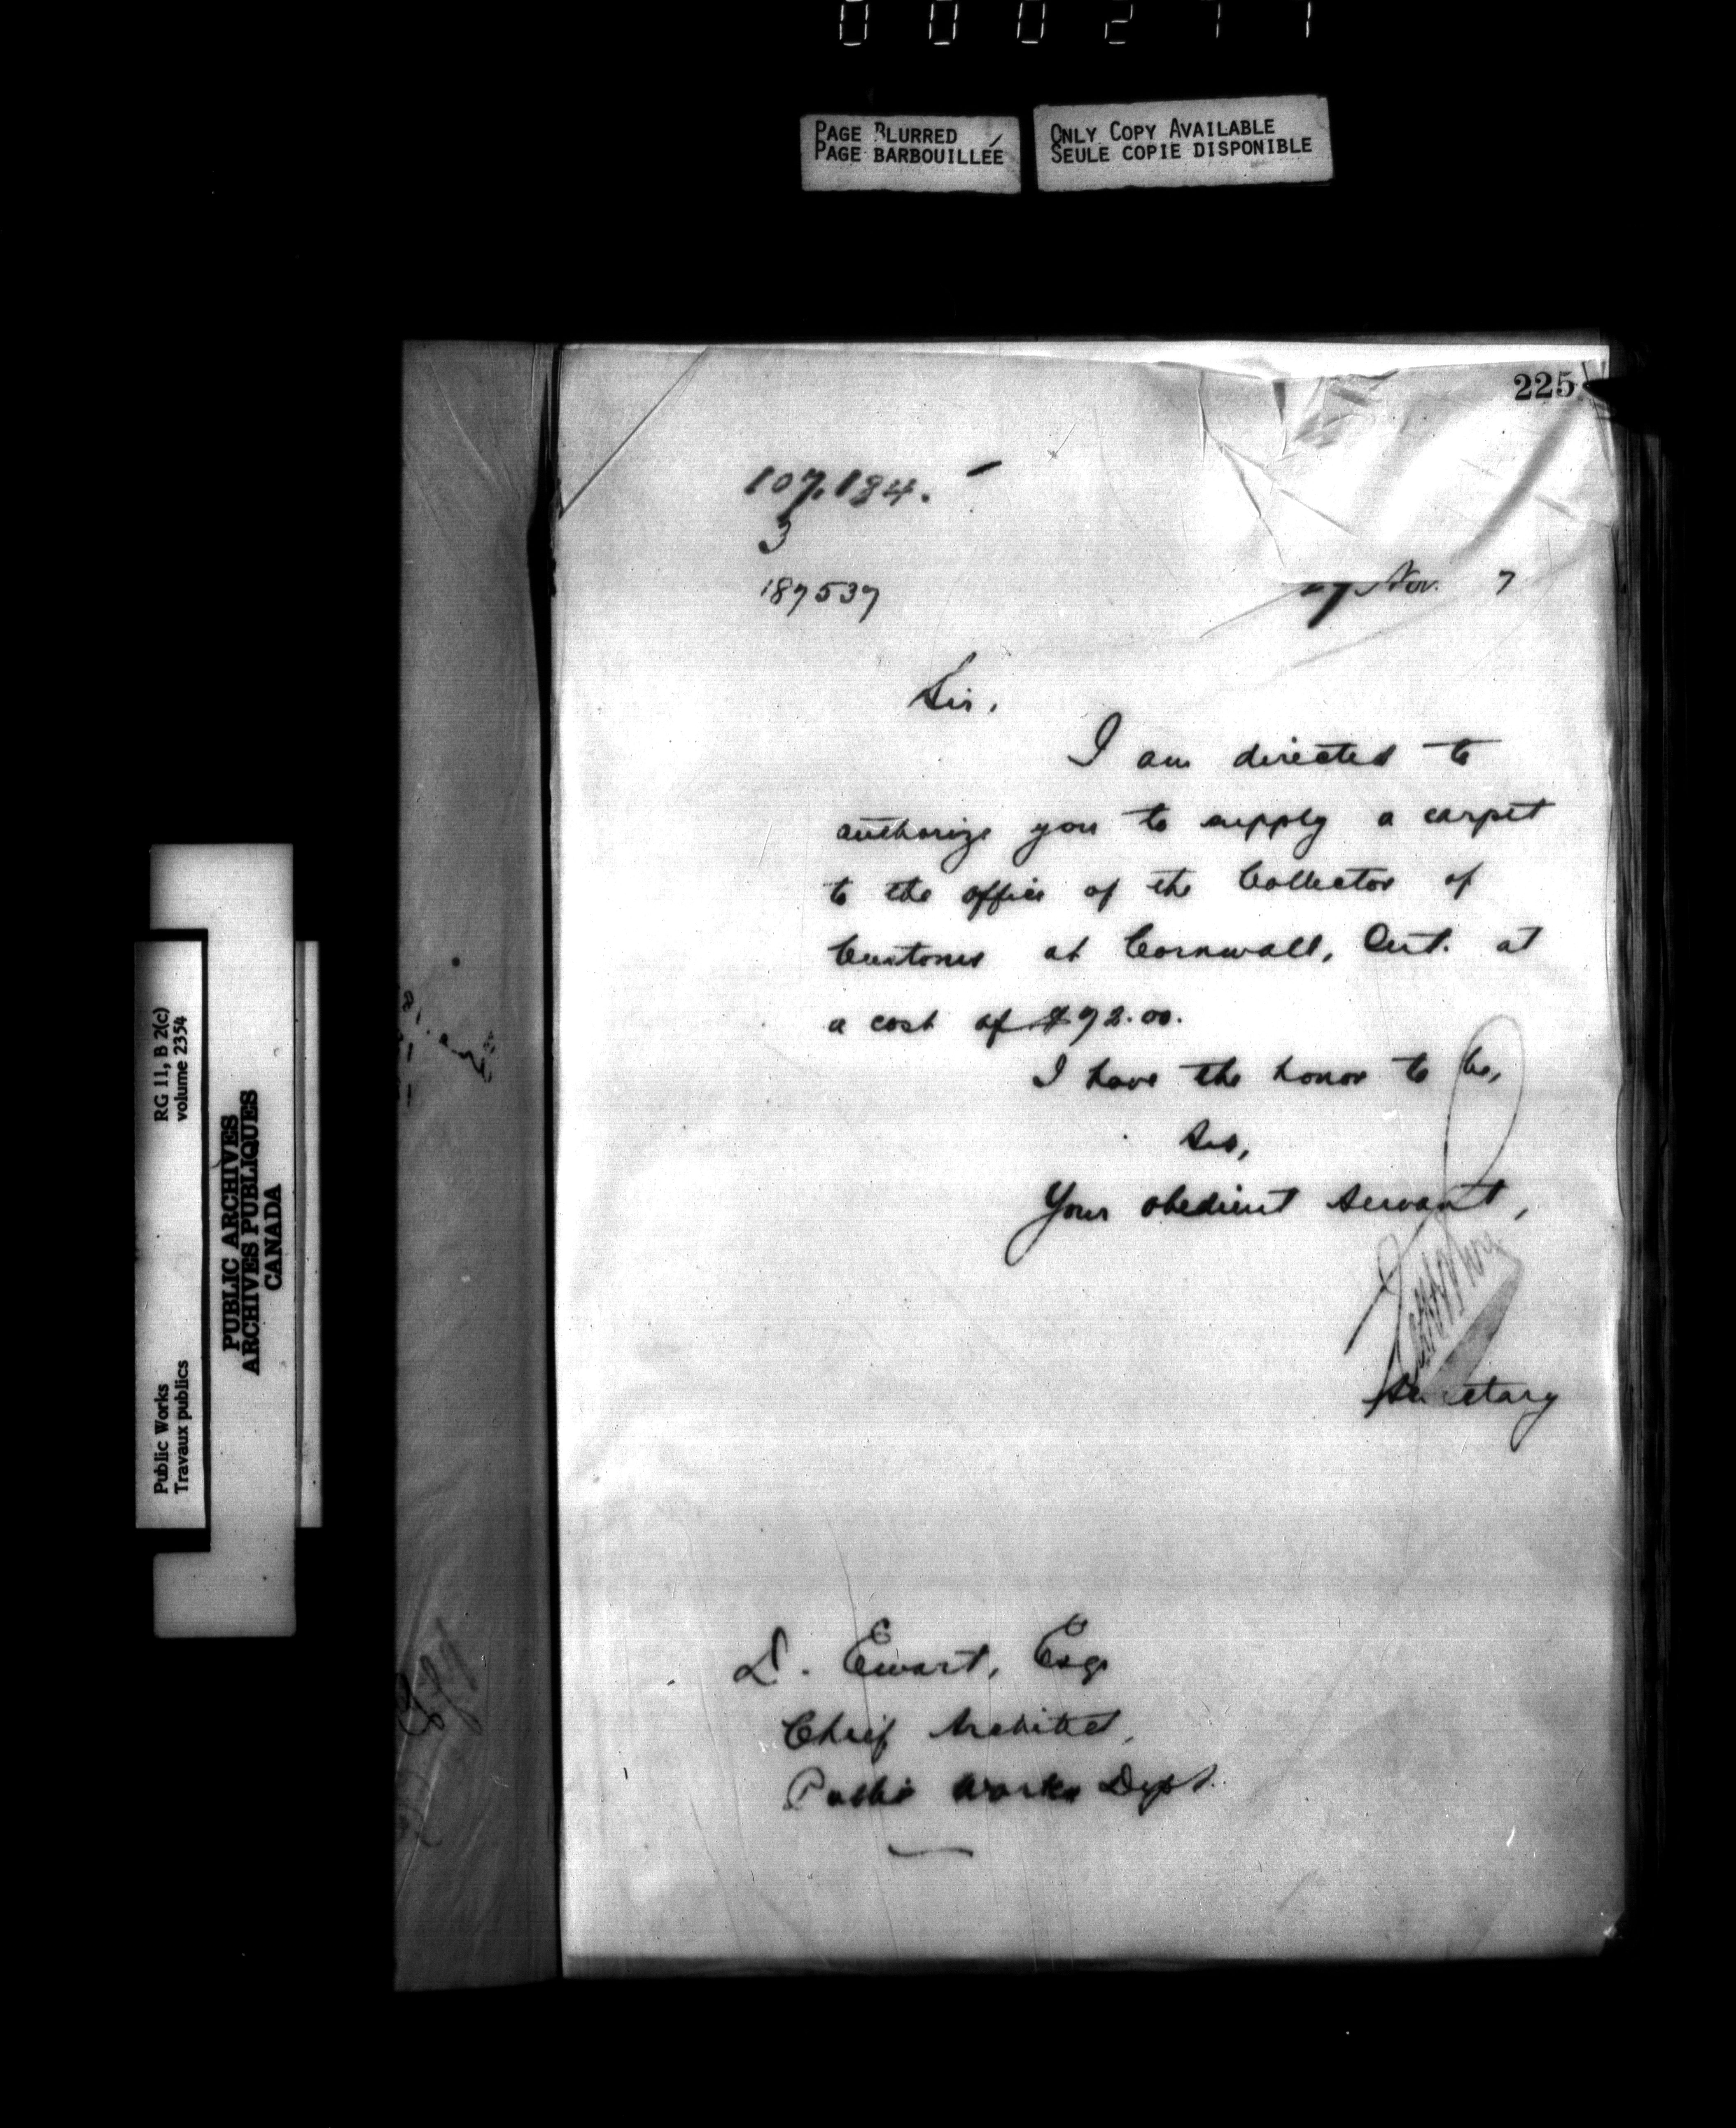 PAGE BLURRED
PAGE BARBOUILLÉE
ONLY COPY AVAILABLE
SEULE COPIE DISPONIBLE
225
107,184.
3
187537
27 Nov. 7
Sir,
I am directed to
authorize you to supply a carpet
to the office of the Collector of
Customs at Cornwall, Ont. at
a cost of $92.00.
I have the honor to be,
Sir,
Your obedient servant,
Secretary
D. Ewart, Esq
Chief Architect,
Public Works Dept.
Public Works
Travaux publics
RG 11, B 2(c)
volume 2354
PUBLIC ARCHIVES
ARCHIVES PUBLIQUES
CANADA